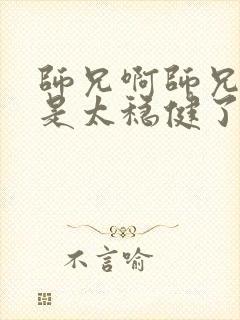 師兄啊師兄
是太穩健了
不言喻